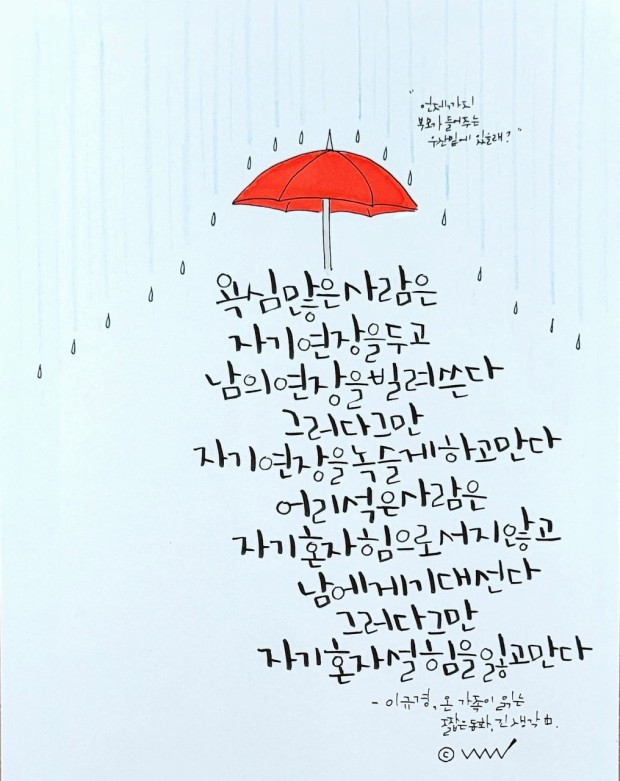 "언제까지
부모가 들어주는
우산밑에 있을래?"
욕심많은사람은
자기연장을두고
남의연장을빌려쓴다
그러다그만
자기연장을녹슬게하고만다
어리석은사람은
자기혼자힘으로서지않고
남에게기대선다
그러다그만
자기혼자설힘을잃고만다
- 이규경, 온 가족이 읽는
짧은동화, 긴생각 中.
©